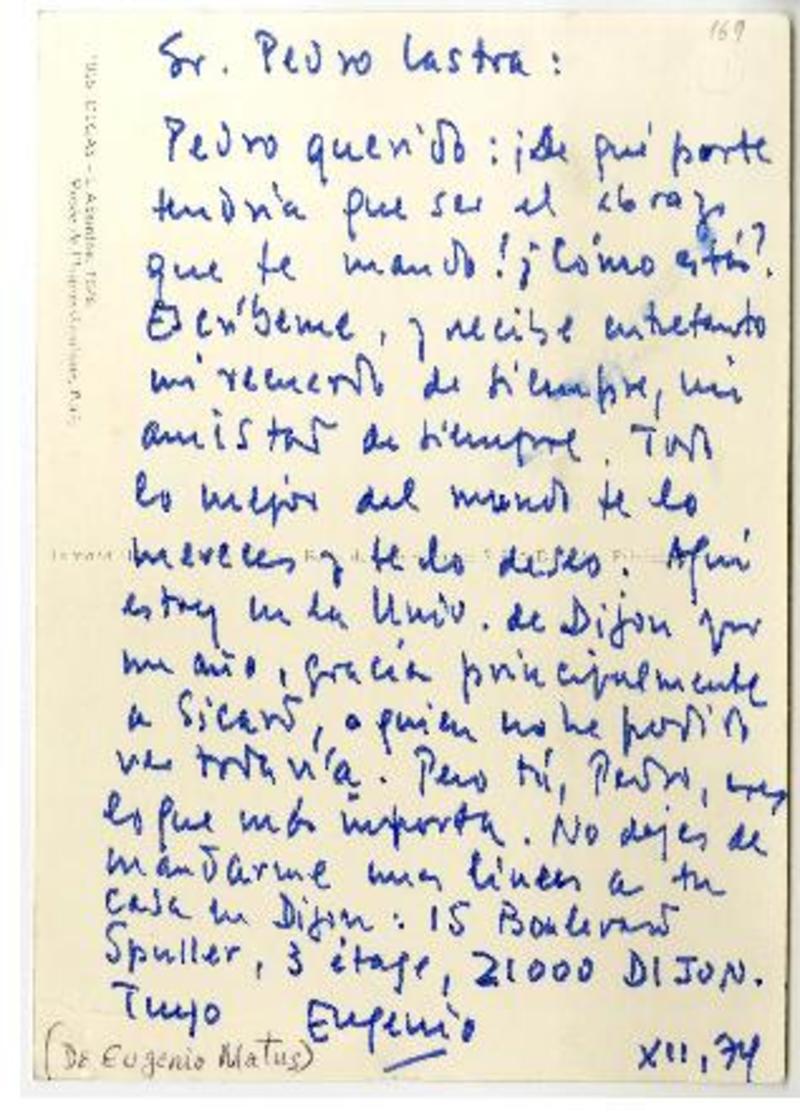 169
Sr. Pedro Lastra:
Pedro querido: ¡De qué porte
tendría que ser el abrazo
que te mando! ¿Cómo estás?.
Escríbeme, y recibe entretanto
mi recuerdo de siempre, mi
amistad de siempre. Todo
lo mejor del mundo te lo
mereces y te lo deseo. Aquí
estoy en la Univ. de Dijon por
un año, gracia principalmente
a Sicard, a quien no he podido
ver todavía. Pero tú, Pedro, eres
lo que más importa. No dejes de
mandarme unas líneas a tu
casa en Dijon: 15 Boulevard
Spuller, 3 étage, 21000 DIJON.
Tuyo Eugenio
XII, 74
(De Eugenio Matus)